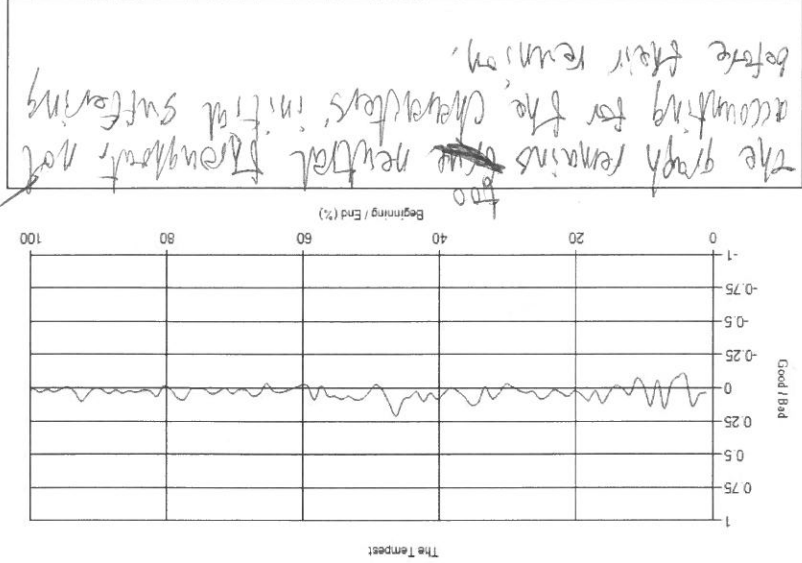 The Tempest
1
0.75
0.5
0.25
0
-0.25
-0.5
-0.75
-1
Good / Bad
0 20 40 60 80 100
Beginning / End (%)
too
The graph remains neutral throughout, not
accounting for the characters' initial suffering
before their reunion.